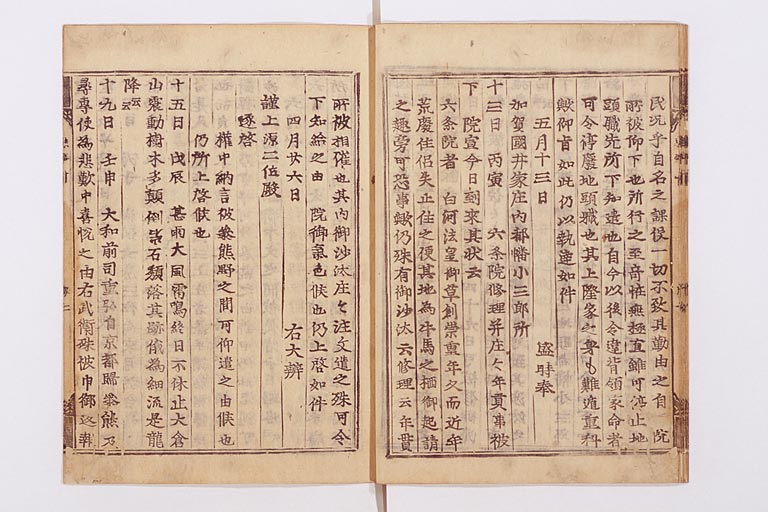 民况乎自名之課役一切不致其勤由之自 院
所被仰下也所行之至奇怪無極直雖可停止地
頭職先所下知遣也自今以後令違背領家命者
可令停廢地頭職也其上隆家之身も難遁重科
歟仰旨如此仍以執達如件
五月十三日 盛時奉
加賀國井家庄内都幡小三郎所
十三日 丙寅 六条院修理并庄々年貢事被
下 院宣今日到來其状云
六条院者 白河法皇御草創崇重年久而近年
荒廢住侶失止住之便其地為牛馬之栖御起請
之趣旁可恐事歟仍殊有御沙汰云修理云年貢
所被相催也其内御沙汰庄々注文遣之殊可令
下知給之由 院御氣色候也仍上啓如件
四月廿六日 右大辨
謹上源二位殿
逐啓
權中納言彼參熊野之間可仰遣之由候也
仍所上啓候也
十五日 戊辰 甚雨大風雷鳴終日不休止大倉
山震動樹木多顛倒岩石頽落其跡俄為細流是龍
降云云
十九日 壬申 大和前司重弘自京都歸參能乃
尋專使為悲歎中喜悦之由右武衛殊被申御返報